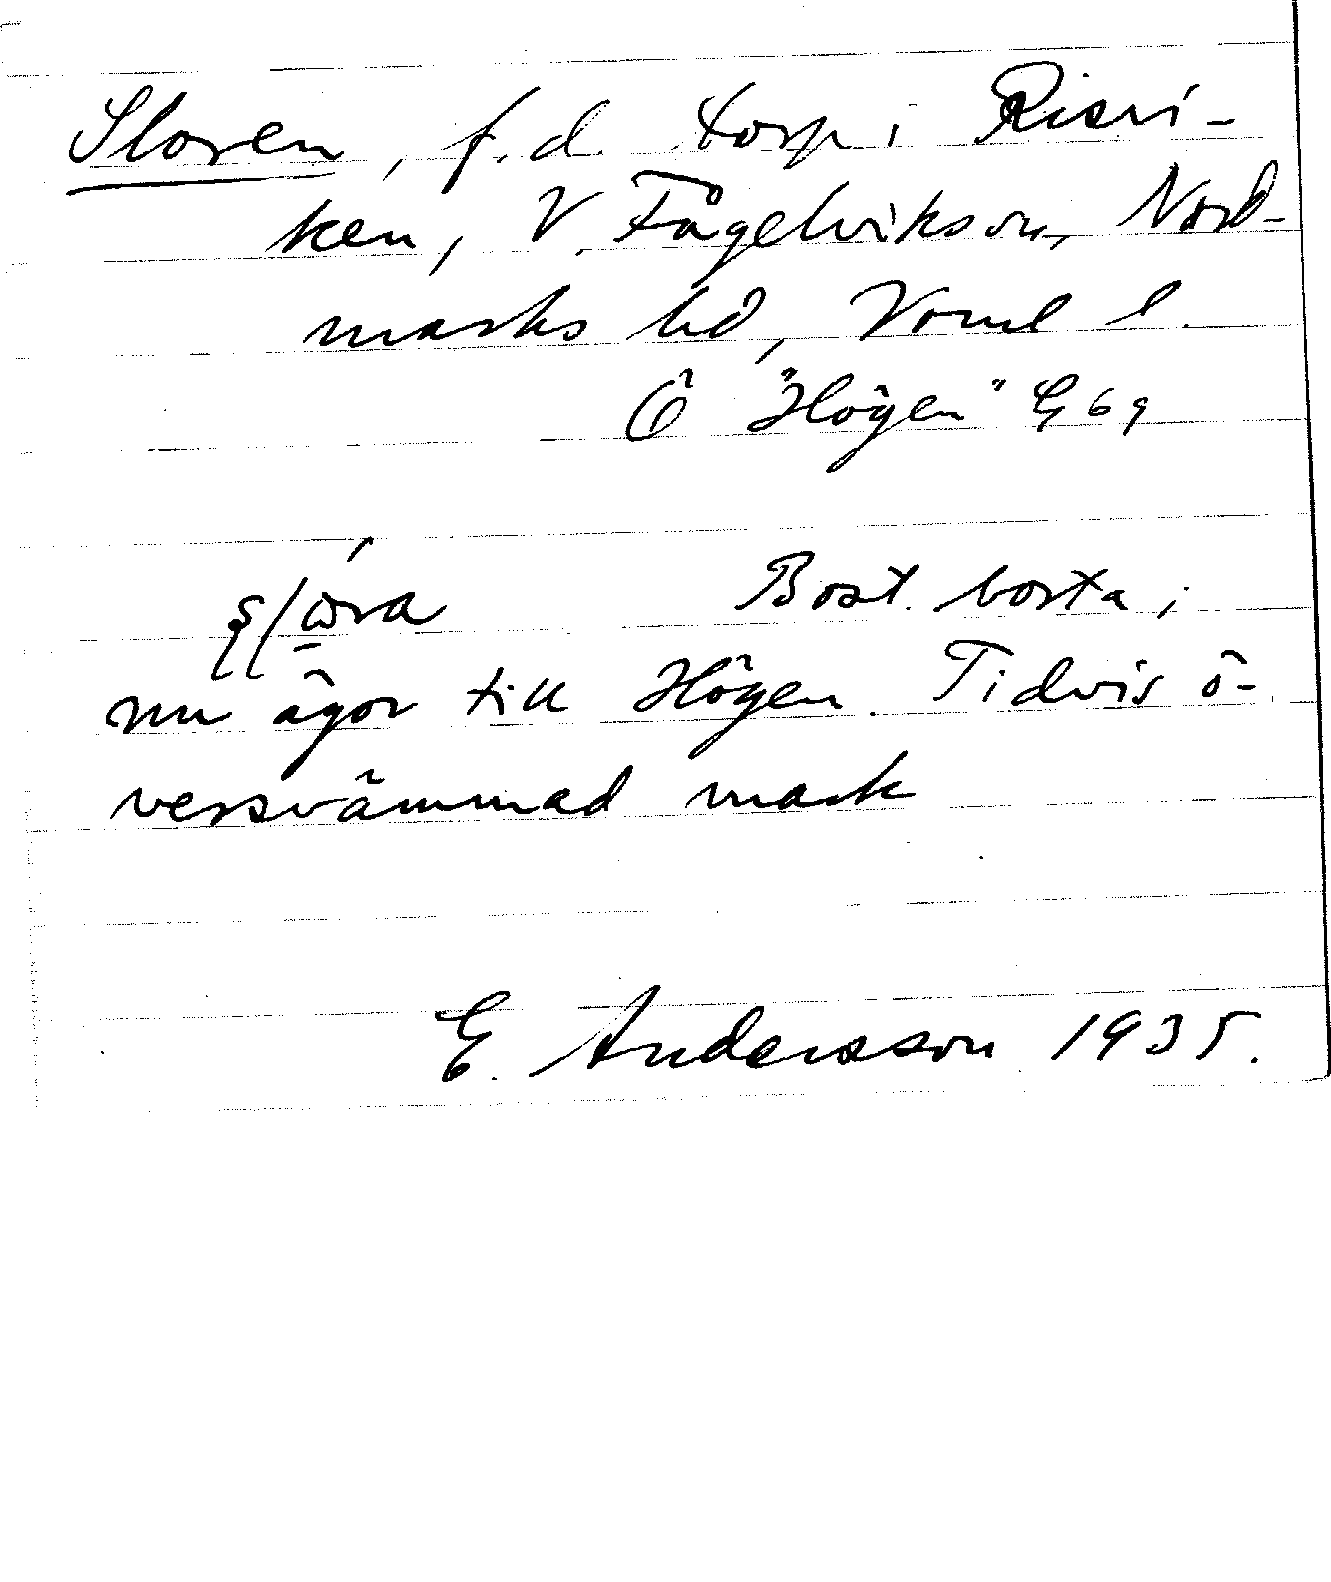 Sloren, f.d. torp i Risvi-
ken, V. Fågelviks sn, Nord-
marks hd, Vrml l.
Ö "Högen" E 69
Bost. borta;
nu ägor till Högen. Tidvis ö-
versvämmad mark
E. Andersson 1935.